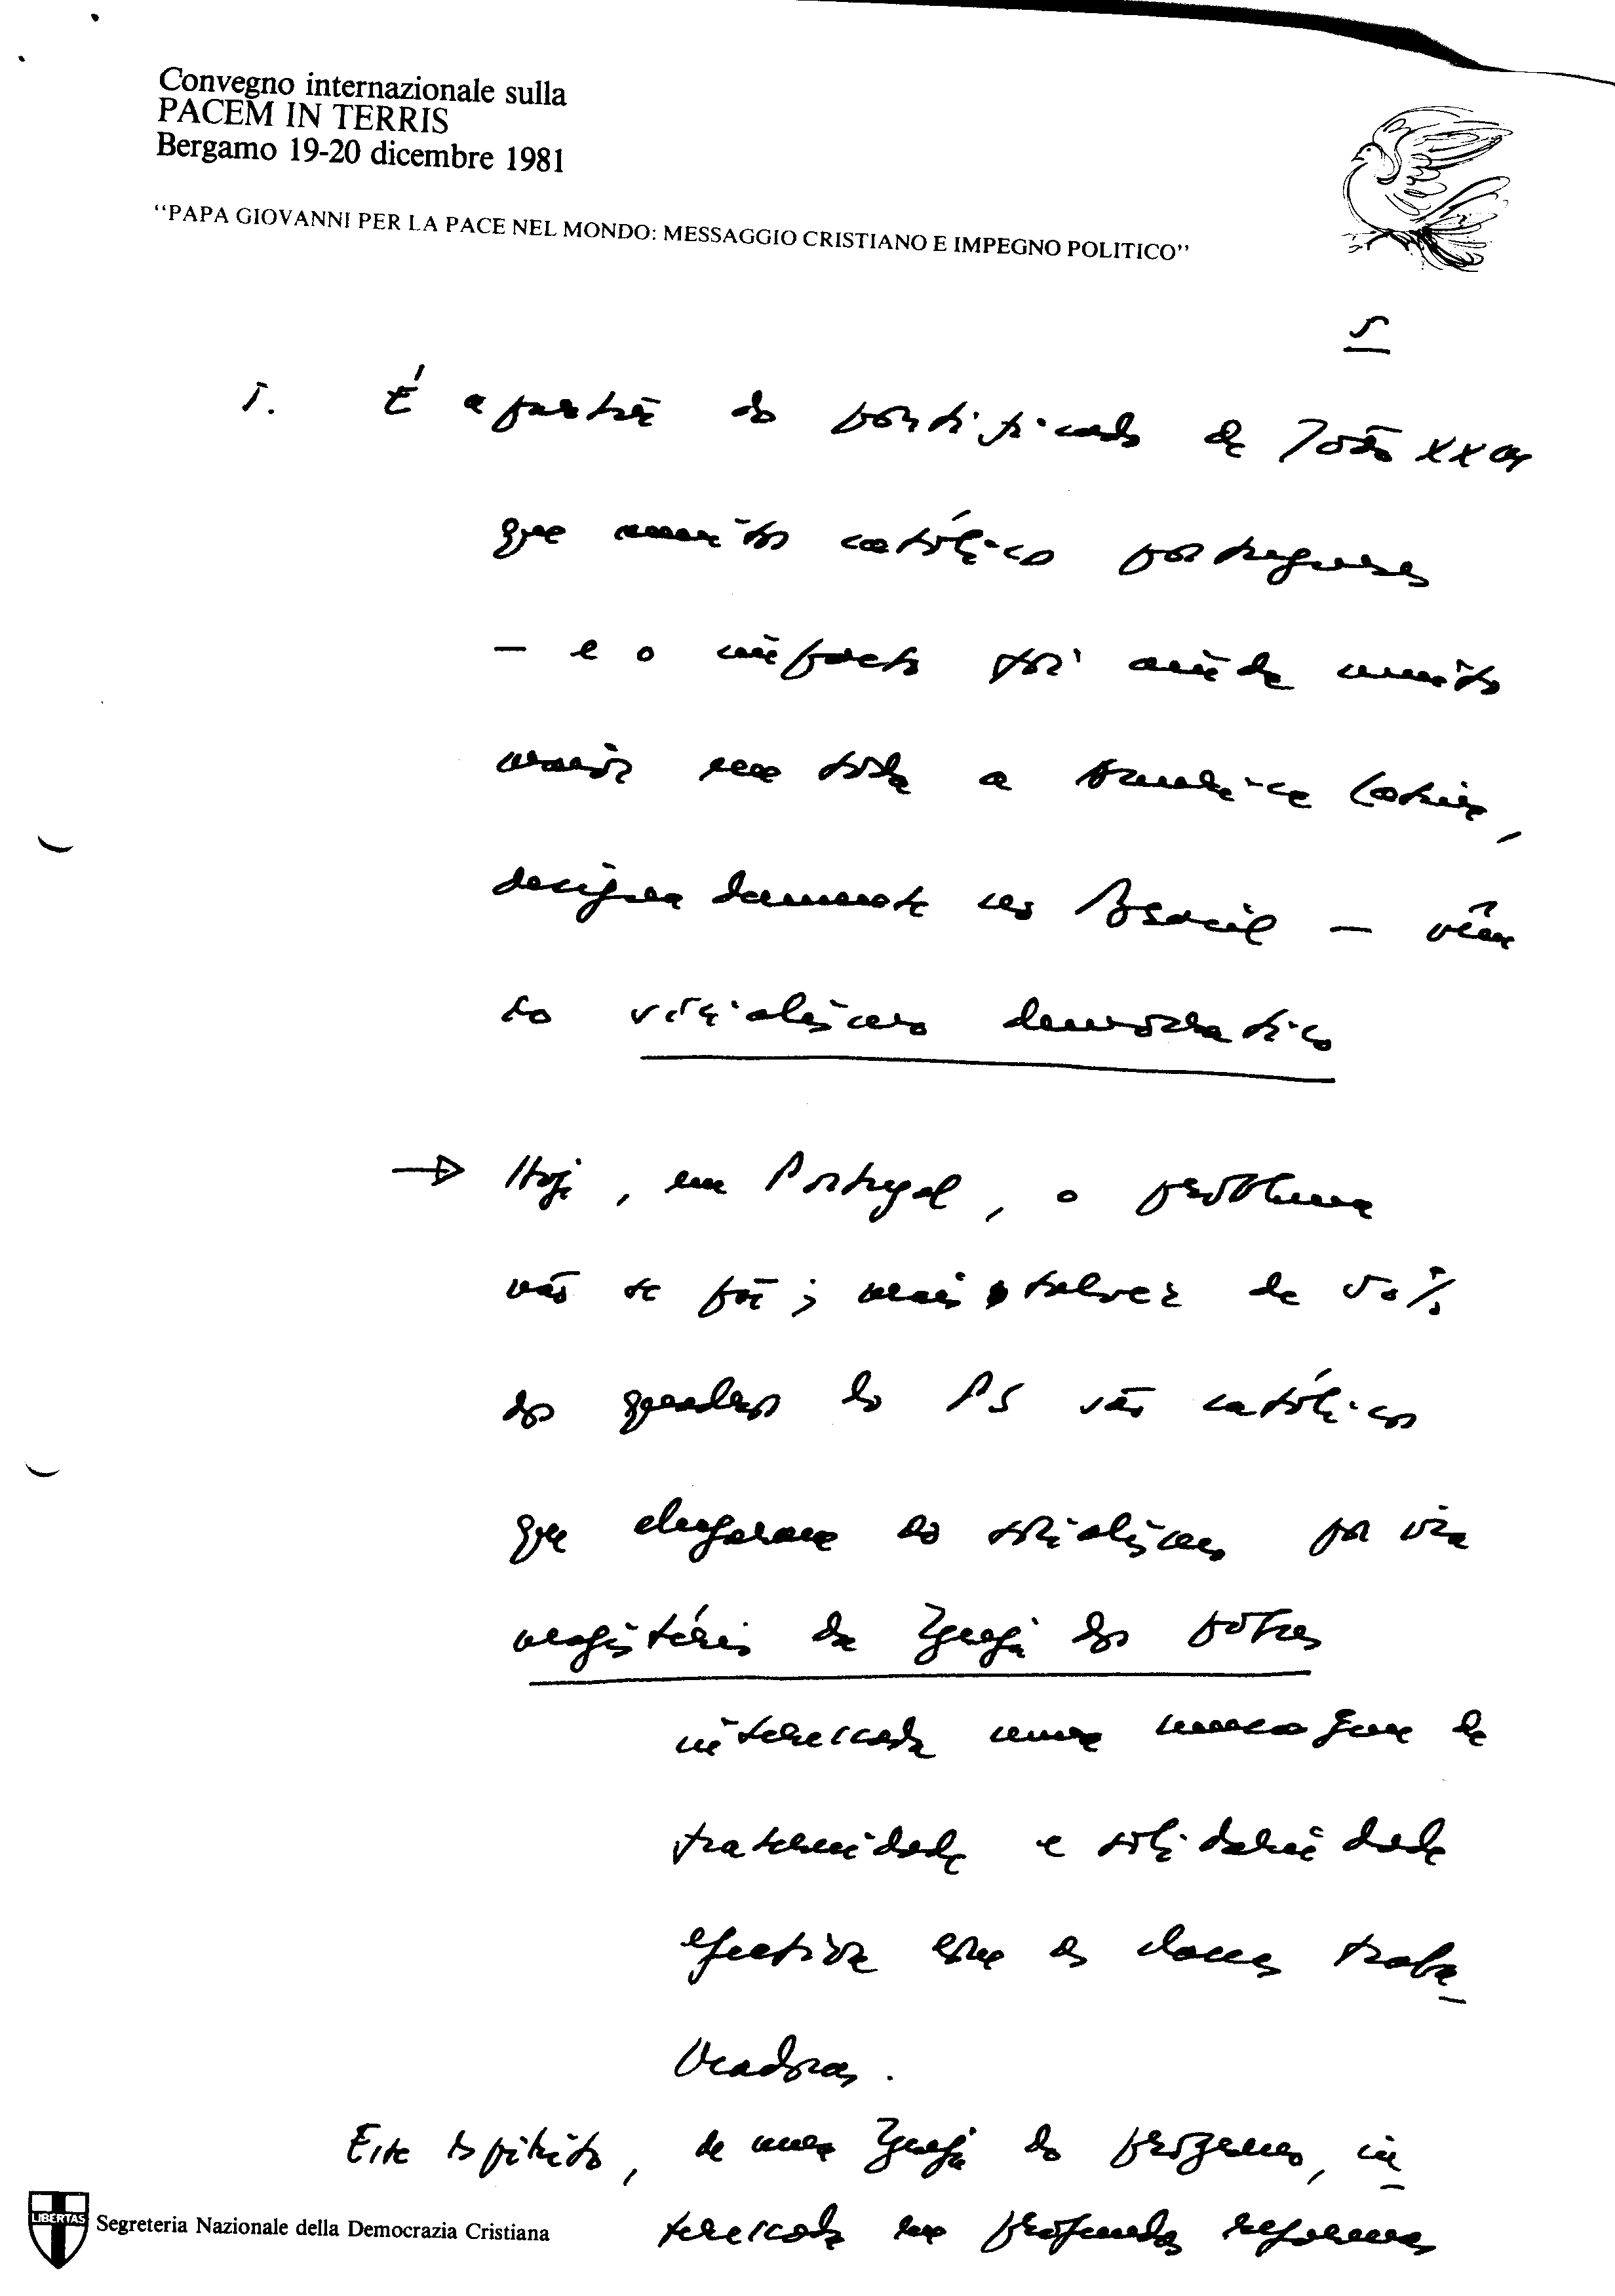 Convegno internazionale sulla
PACEM IN TERRIS
Bergamo 19-20 dicembre 1981
"PAPA GIOVANNI PER LA PACE NEL MONDO: MESSAGGIO CRISTIANO E IMPEGNO POLITICO"
5
5. É a partir do pontificado de João XXIII
que muitos católicos portugueses
— e o impacto foi ainda muito
maior em toda a América Latina,
designadamente no Brasil — vêm
ao socialismo democrático
→ Hoje, em Portugal, o problema
não se põe; mais talvez de 50%
dos quadros do PS são católicos
que chegaram ao socialismo por via
magistério da Igreja dos pobres
interessada numa mensagem de
fraternidade e solidariedade
efectiva com as classes traba
lhadoras.
Este espírito, de uma Igreja do progresso, in
teressada em profundas reformas
LIBERTAS
Segreteria Nazionale della Democrazia Cristiana